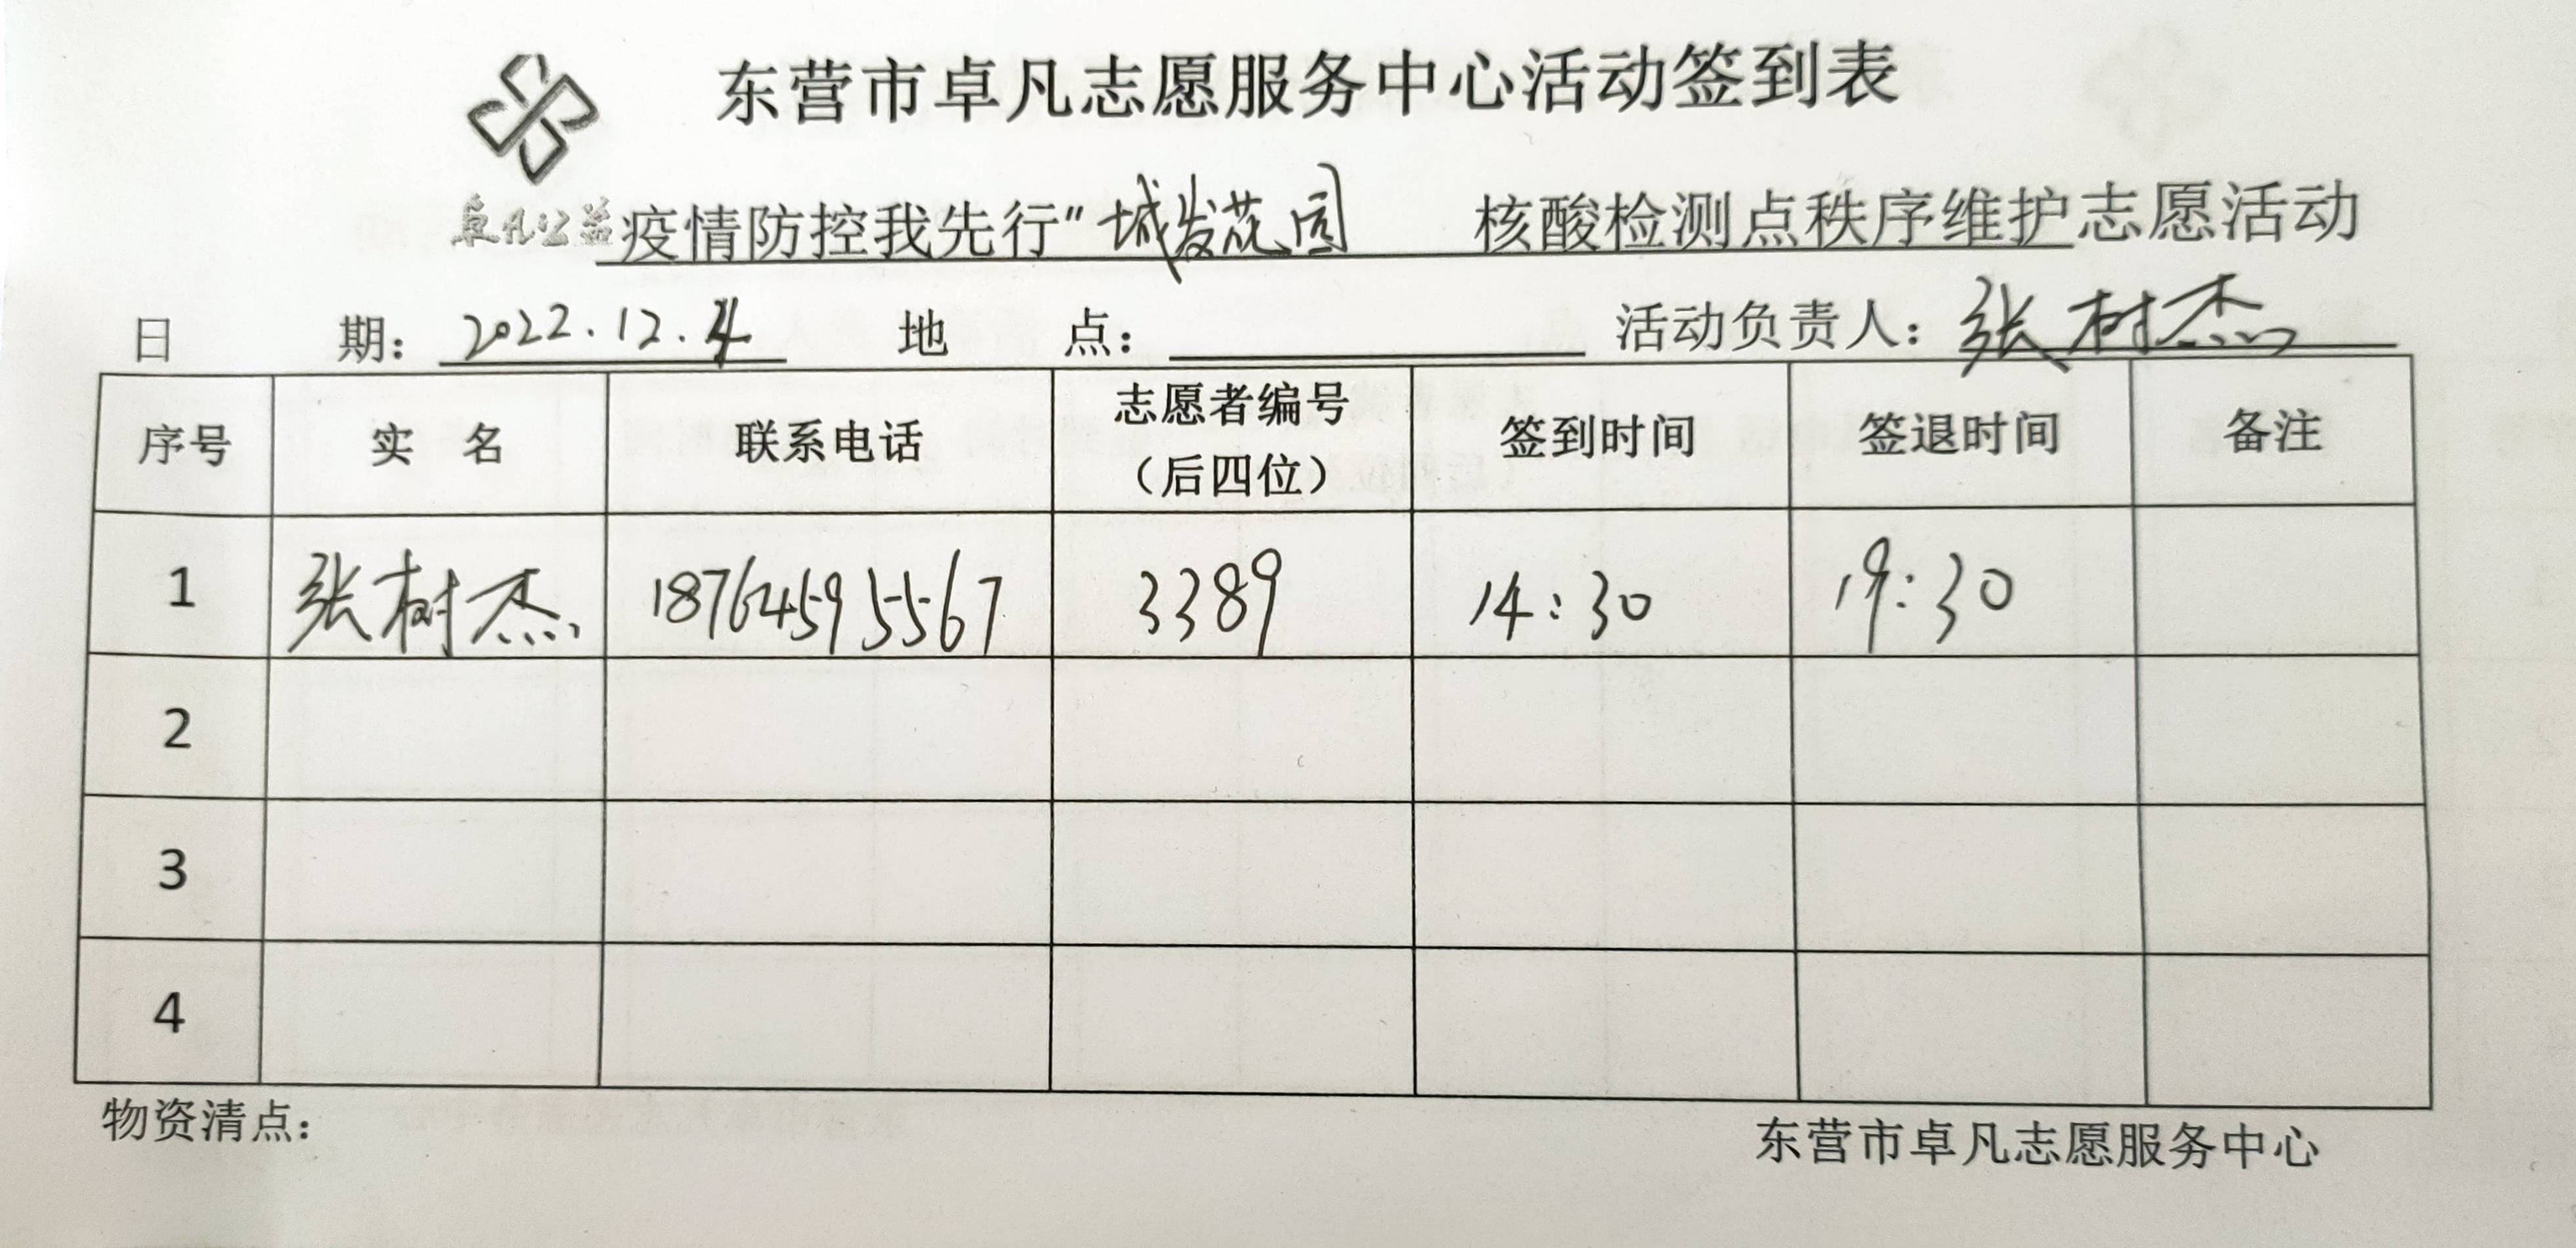 东营市卓凡志愿服务中心活动签到表
卓凡公益
疫情防控我先行”城发花园 核酸检测点秩序维护志愿活动
日 期：2022.12.4 地 点： 活动负责人：张树杰
序号 实 名 联系电话 志愿者编号（后四位） 签到时间 签退时间 备注
1 张树杰 18764595567 3389 14：30 19：30
2
3
4
物资清点： 东营市卓凡志愿服务中心